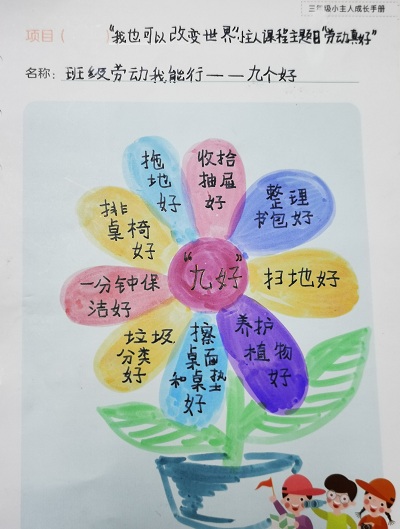 三年级小主人成长手册
项目( "我也可以改变世界"小主人课程主题日"劳动真好"
名称: 班级劳动我能行——九个好
拖
地
好
收拾
抽屉
好
整理
书包好
排
桌椅
好
"九好"
扫地好
一分钟保
洁好
垃圾
分类
好
擦
桌面
和桌垫
好
养护
植物
好